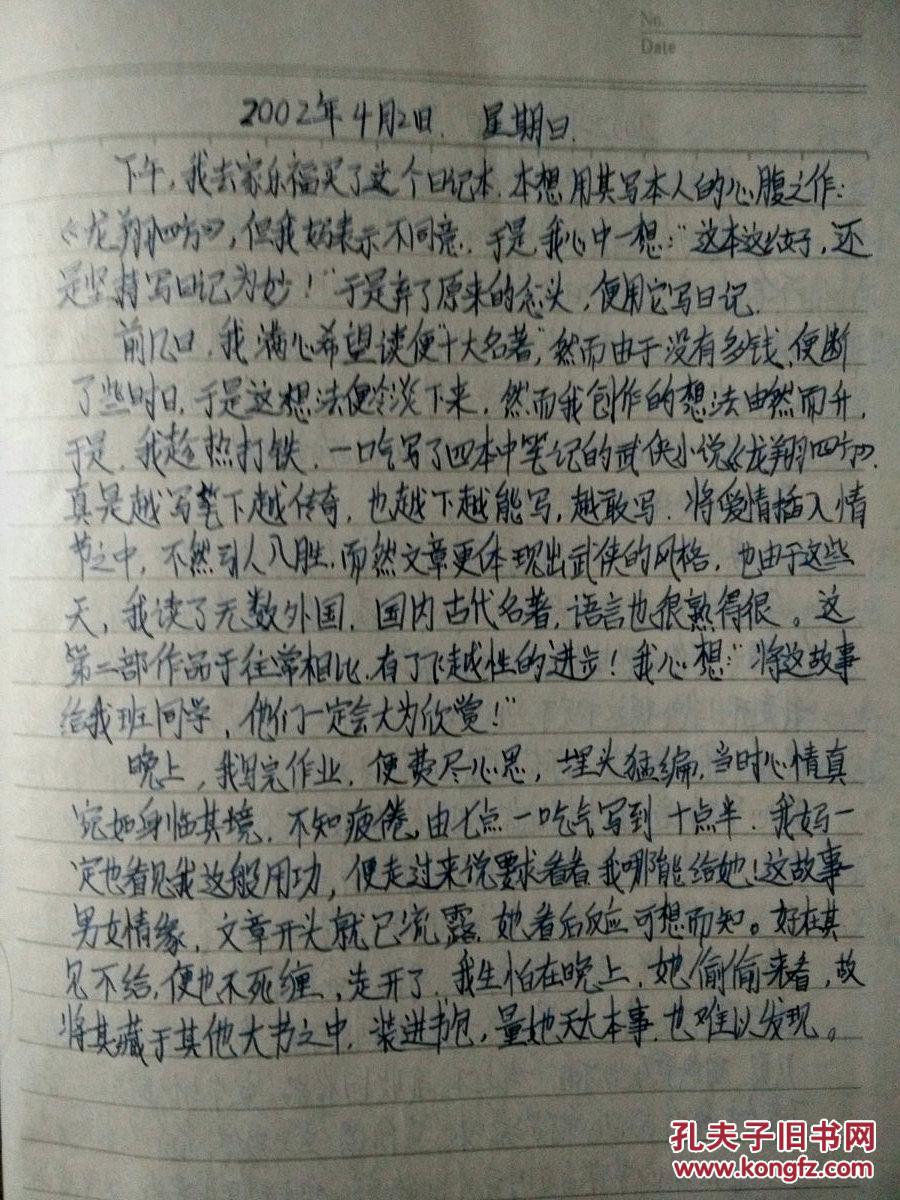 No.
Date
2002年4月2日. 星期日.
下午,我去家乐福买了这个日记本.本想用其写本人的心腹之作:
《龙翔四方》,但我妈表示不同意.于是我心中一想:"这本这么好,还
是坚持写日记为妙!"于是弃了原来的念头,便用它写日记.
前几日.我满心希望读便"十大名著",然而由于没有多钱.便断
了些时日.于是这想法便冷淡下来.然而我创作的想法由然而升.
于是.我趁热打铁.一口吃写了四本中笔记的武侠小说《龙翔四方》.
真是越写笔下越传奇.也越下越能写,越敢写.将爱情插入情
节之中,不然引人入胜.而然文章更体现出武侠的风格.也由于这些
天,我读了无数外国.国内古代名著,语言也很熟得很。这
第二部作品于往常相比.有了飞越性的进步!我心想:"将这故事
给我班同学,他们一定会大为欣赏!"
晚上,我写完作业.便费尽心思,埋头猛编.当时心情真
宛如身临其境.不知疲倦.由七点一吃气写到十点半.我妈一
定也看见我这般用功,便走过来说要求看看.我哪能给她!这故事
男女情缘.文章开头就已流露.她看后反应可想而知。好在其
见不给,便也不死缠,走开了.我生怕在晚上.她偷偷来看,故
将其藏于其他大书之中.装进书包,量她天大本事.也难以发现。
孔夫子旧书网
www.kongfz.com